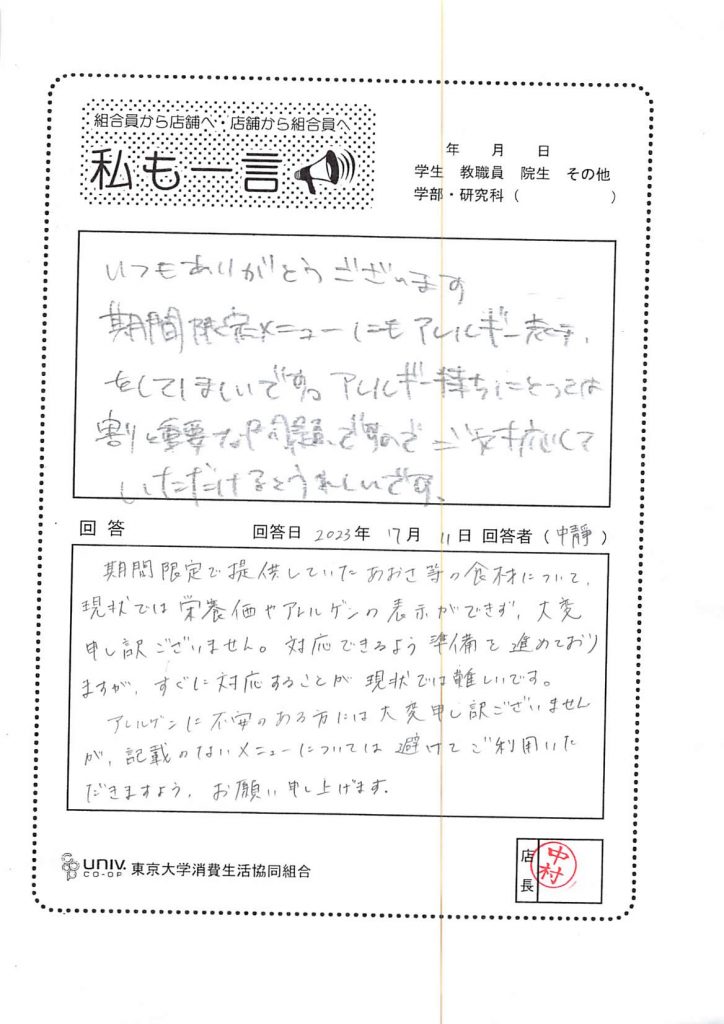 組合員から店舗へ・店舗から組合員へ
私も一言
年 月 日
学生 教職員 院生 その他
学部・研究科( )
いつもありがとうございます
期間限定メニューにもアレルギー表示
をしてほしいです。アレルギー持ちにとっては
割と重要な問題ですのでご検討して
いただけるとうれしいです。
回答 回答日 2023年 月 11日 回答者( )
期間限定で提供していたあおさ等の食材について、
現状では栄養価やアレルゲンの表示ができず、大変
申し訳ございません。対応できるよう準備を進めており
ますが、すぐに対応することが現状では難しいです。
アレルゲンに不安のある方には大変申し訳ございません
が、記載のないメニューについては避けてご利用いた
だきますよう、お願い申し上げます。
UNIV. CO-OP 東京大学消費生活協同組合
店長 中村